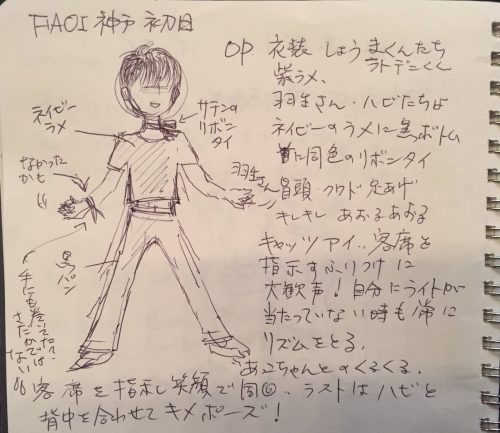 FAOI 神戸 初日
OP 衣装 しょうまくんたち
ラトデニくん
紫ラメ、
羽生さん・ハビたちは
ネイビーのラメに黒ボトム
首に同色のリボンタイ
冒頭・クワド 足あげ
キレキレ あおるあおる
キャッツアイ‥客席を
指示すふりつけに
大歓声!自分にライトが
当たっていない時も常に
リズムをとる。
あっこちゃんとのくるくる。
客席を指示し笑顔で同◎‥ラストはハビと
背中を合わせてキメポーズ!
ネイビー
ラメ
サテンの
リボン
タイ
なかった
かも
羽生さん
黒パン
手にも巻いてた?
さだかでは
ない